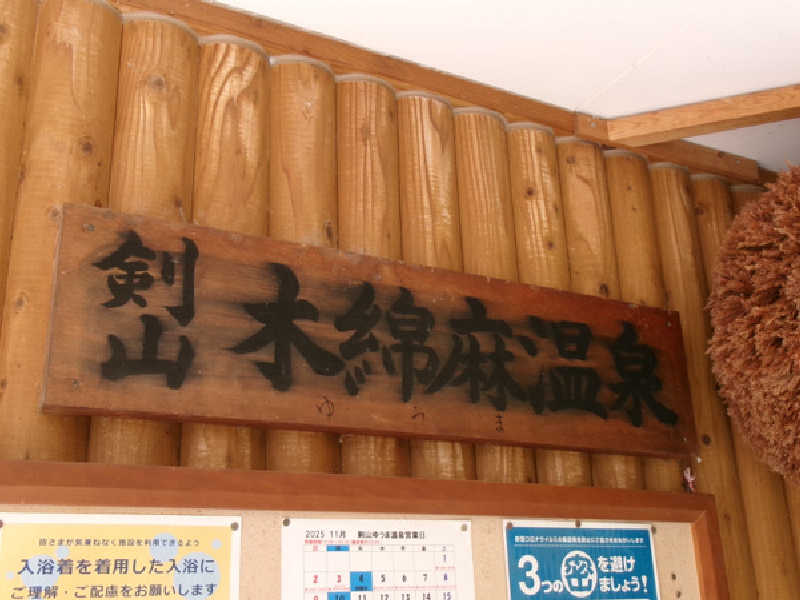 剣山
木綿麻温泉
ゆうま
皆さまが気兼ねなく施設を利用できるよう
入浴着を着用した入浴に
ご理解・ご配慮をお願いします
2025 11月 剣山ゆうま温泉営業日
1
2 3 4 5 6 7 8
9 10 11 12 13 14 15
3つの密を避け
ましょう!